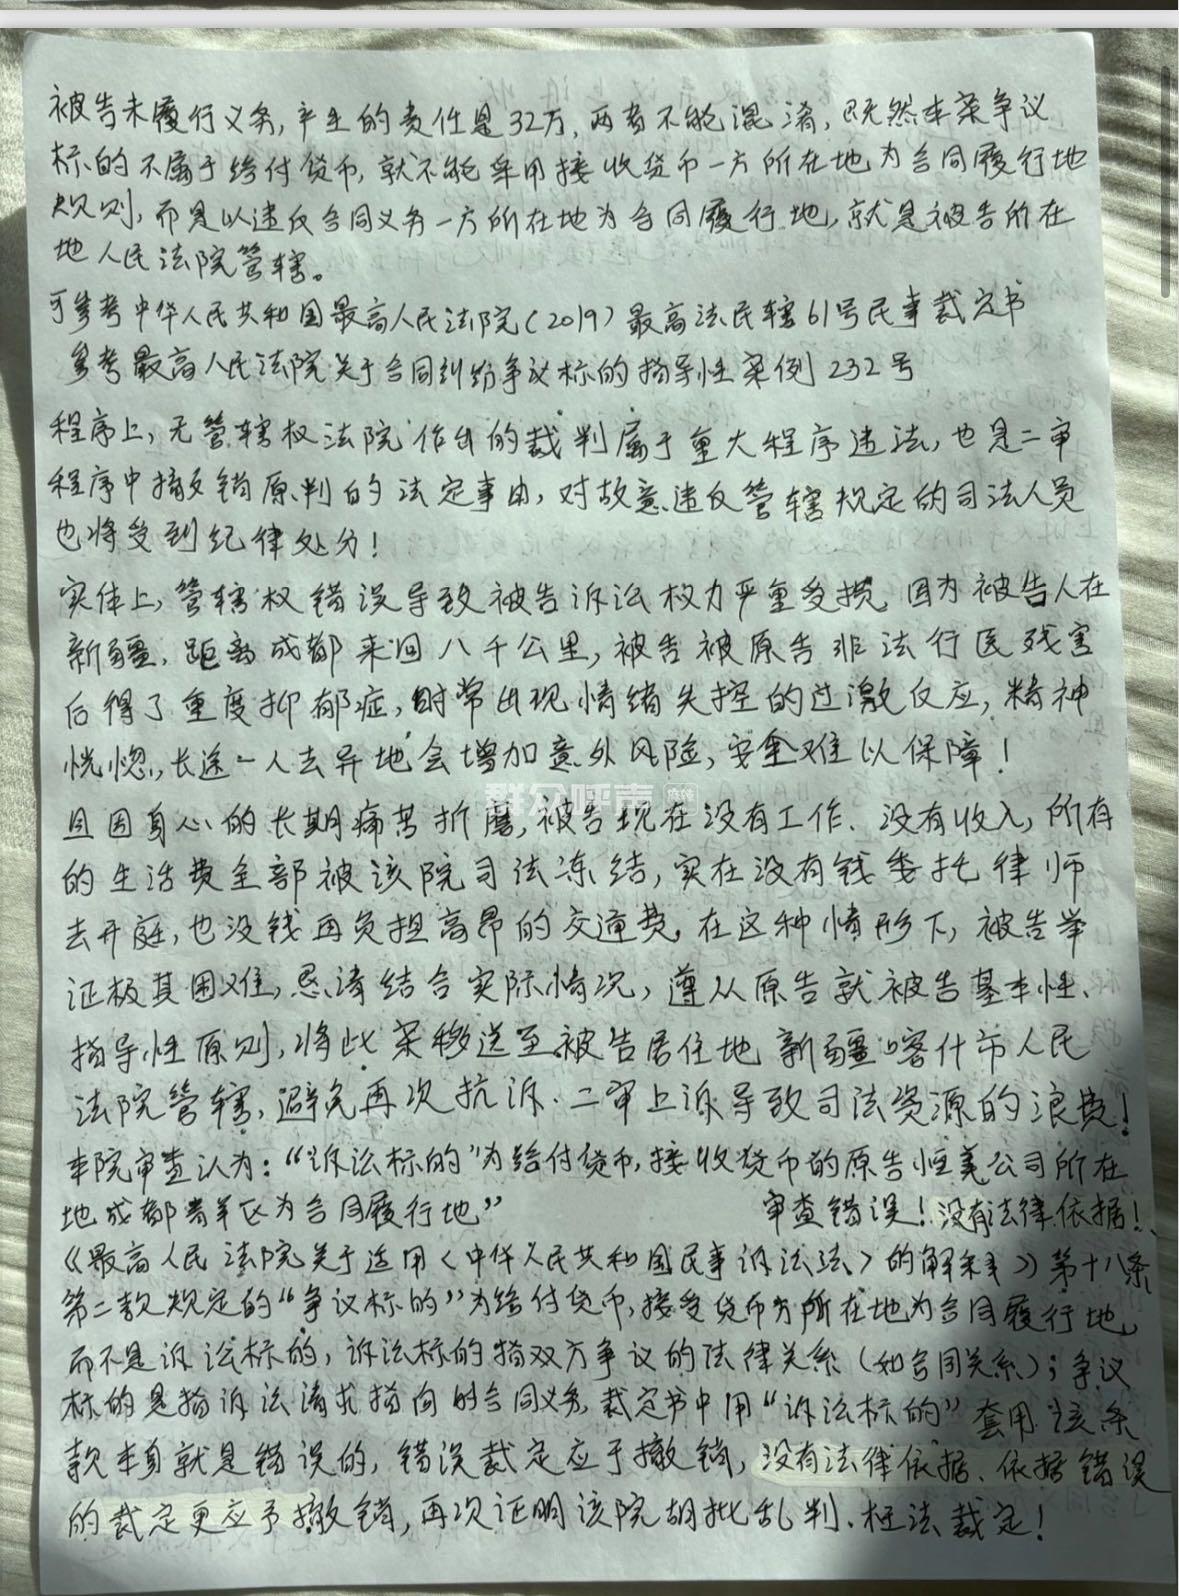 被告未履行义务,产生的责任是32万,两者不能混淆,既然本案争议
标的不属于给付货币,就不能采用接收货币一方所在地为合同履行地
规则,而是以违反合同义务一方所在地为合同履行地,就是被告所在
地人民法院管辖。
可参考中华人民共和国最高人民法院(2019)最高法民辖61号民事裁定书
参考最高人民法院关于合同纠纷争议标的指导性案例232号
程序上,无管辖权法院作出的裁判属于重大程序违法,也是二审
程序中撤销原判的法定事由,对故意违反管辖规定的司法人员
也将受到纪律处分!
实体上,管辖权错误导致被告诉讼权力严重受损,因为被告人在
新疆,距离成都来回八千公里,被告被原告非法行医残害
后得了重度抑郁症,时常出现情绪失控的过激反应,精神
恍惚,长途一人去异地会增加意外风险,安全难以保障!
且因身心的长期痛苦折磨,被告现在没有工作、没有收入,所有
的生活费全部被该院司法冻结,实在没有钱委托律师
去开庭,也没钱再负担高昂的交通费。在这种情形下,被告举
证极其困难,恳请结合实际情况,遵从原告就被告基本性、
指导性原则,将此案移送至被告居住地新疆喀什市人民
法院管辖,避免再次抗诉、二审上诉导致司法资源的浪费!
本院审查认为:“诉讼标的”为给付货币,接收货币的原告恒美公司所在
地成都青羊区为合同履行地” 审查错误!没有法律依据!
《最高人民法院关于适用〈中华人民共和国民事诉讼法〉的解释》第十八条
第二款规定的“争议标的”为给付货币,接受货币方所在地为合同履行地,
而不是诉讼标的,诉讼标的指双方争议的法律关系(如合同关系);争议
标的是指诉讼请求指向的合同义务,裁定书中用“诉讼标的”套用该条
款本身就是错误的,错误裁定应于撤销,没有法律依据、依据错误
的裁定更应予撤销,再次证明该院胡批乱判、枉法裁定!
群众呼声